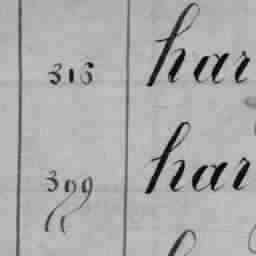 313 har
399 har